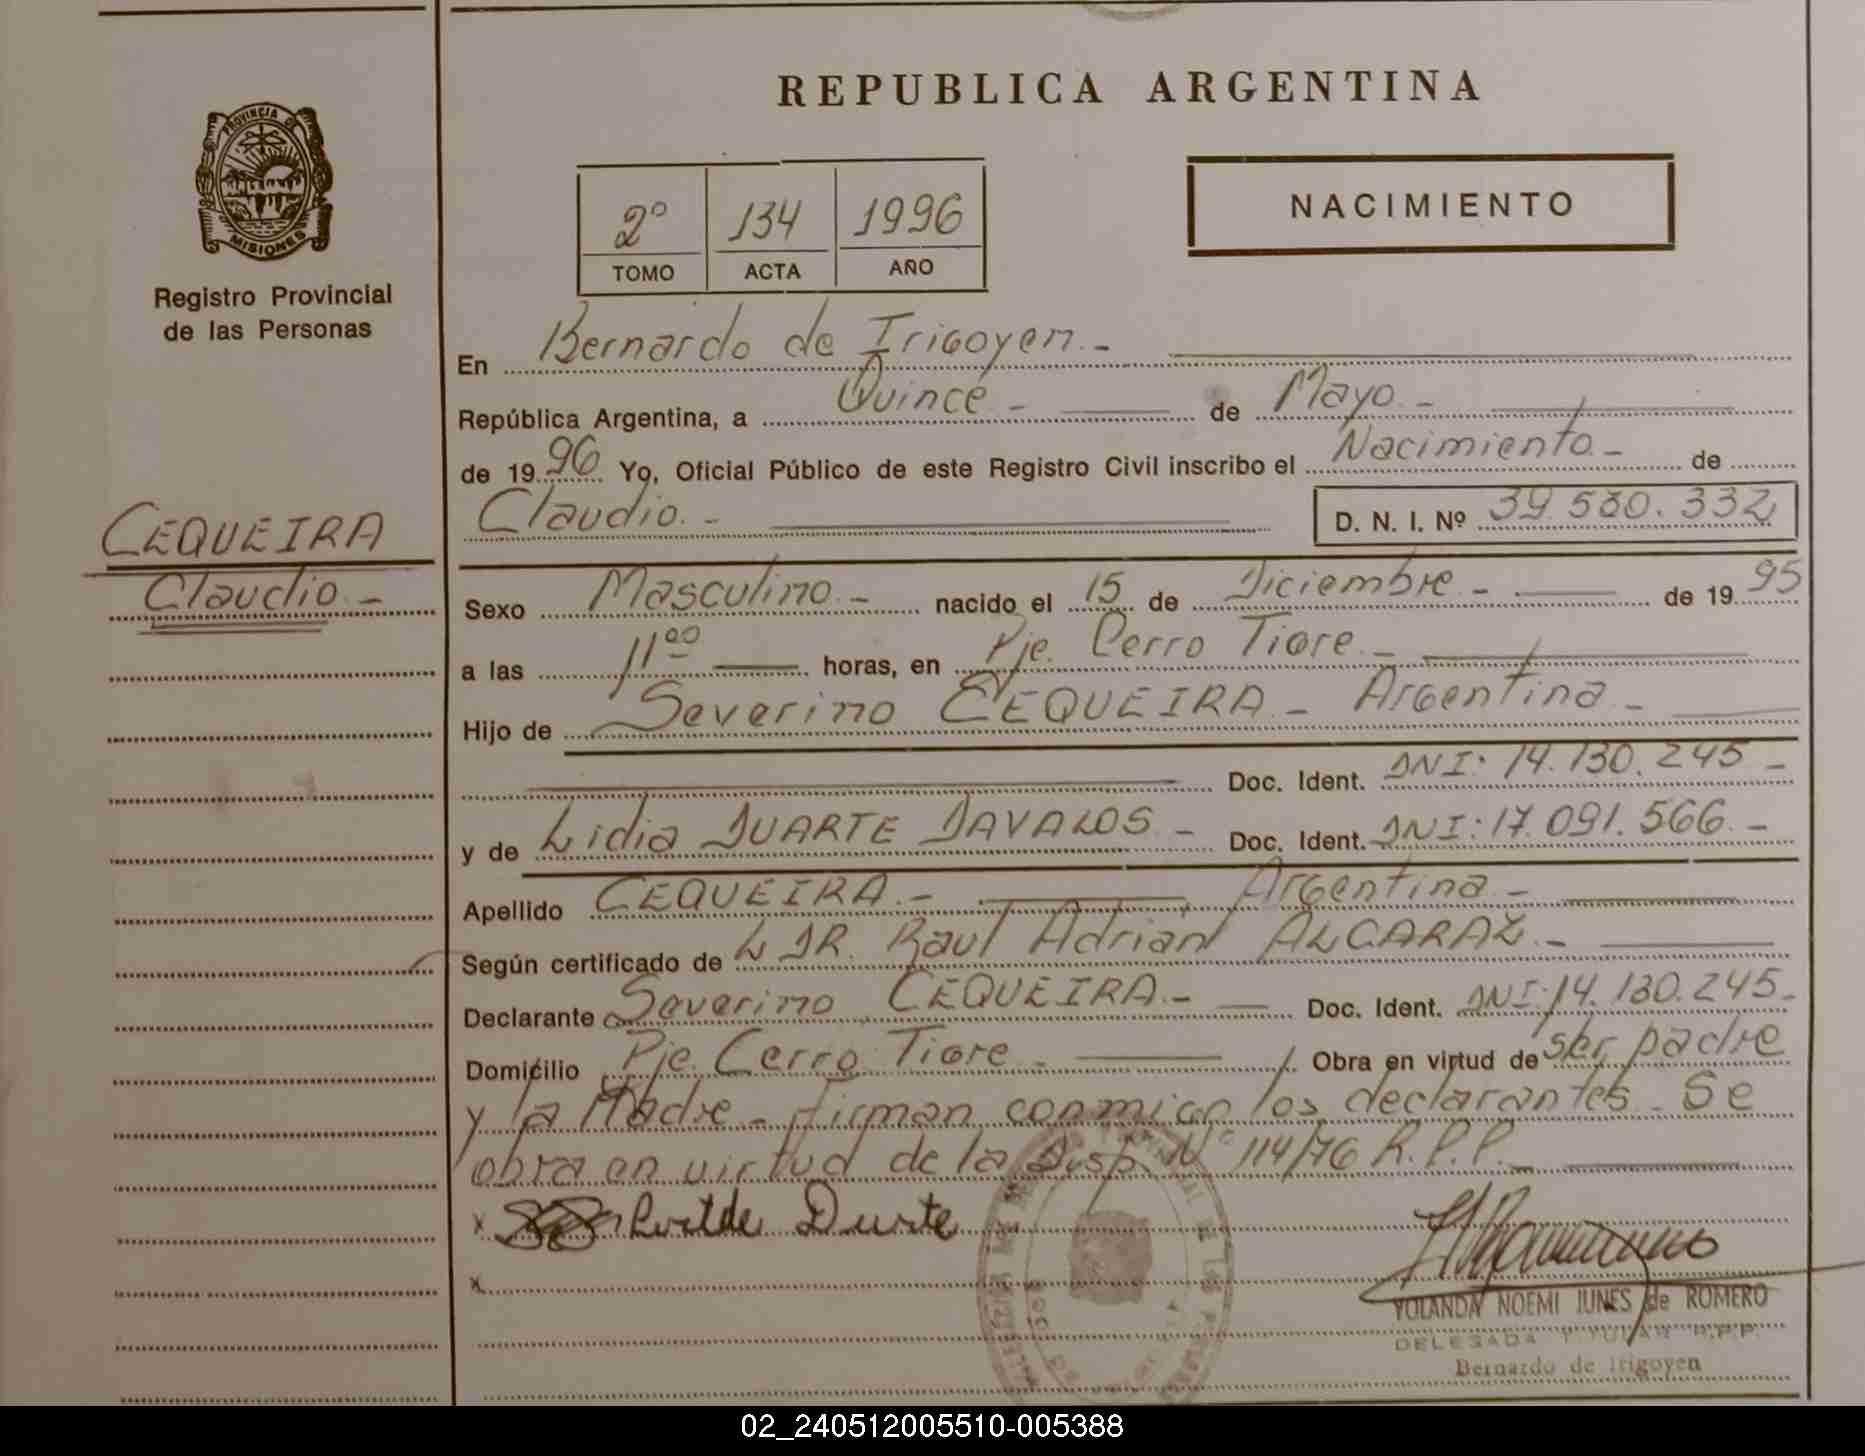 REPUBLICA ARGENTINA
PROVINCIA DE
MISIONES
Registro Provincial
de las Personas
2º 134 1996
TOMO ACTA AÑO
NACIMIENTO
En Bernardo de Irigoyen.-
República Argentina, a Quince - de Mayo.-
de 1996 Yo, Oficial Público de este Registro Civil inscribo el Nacimiento.- de
Claudio.- D. N. I. Nº 39.580.332
CEQUEIRA
Claudio.-
Sexo Masculino.- nacido el 15 de Diciembre.- de 1995
a las 11⁰⁰ horas, en Pje. Cerro Tigre.-
Hijo de Severino CEQUEIRA.- Argentina.-
Doc. Ident. DNI: 14.130.245.-
y de Lidia DUARTE DAVALOS.- Doc. Ident. DNI: 17.091.566.-
Apellido CEQUEIRA.- Argentina.-
Según certificado de L DR. Raul Adrian ALCARAZ.-
Declarante Severino CEQUEIRA.- Doc. Ident. DNI: 14.130.245.-
Domicilio Pje. Cerro Tigre.- Obra en virtud de ser padre
y la Madre.- firman conmigo los declarantes. Se
obra en virtud de la Disp. Nº 114/76 R.P.P.-
x Duarte
x
YOLANDA NOEMI JUNES de ROMERO
DELEGADA TITULAR R.P.P.
Bernardo de Irigoyen
02_240512005510-005388